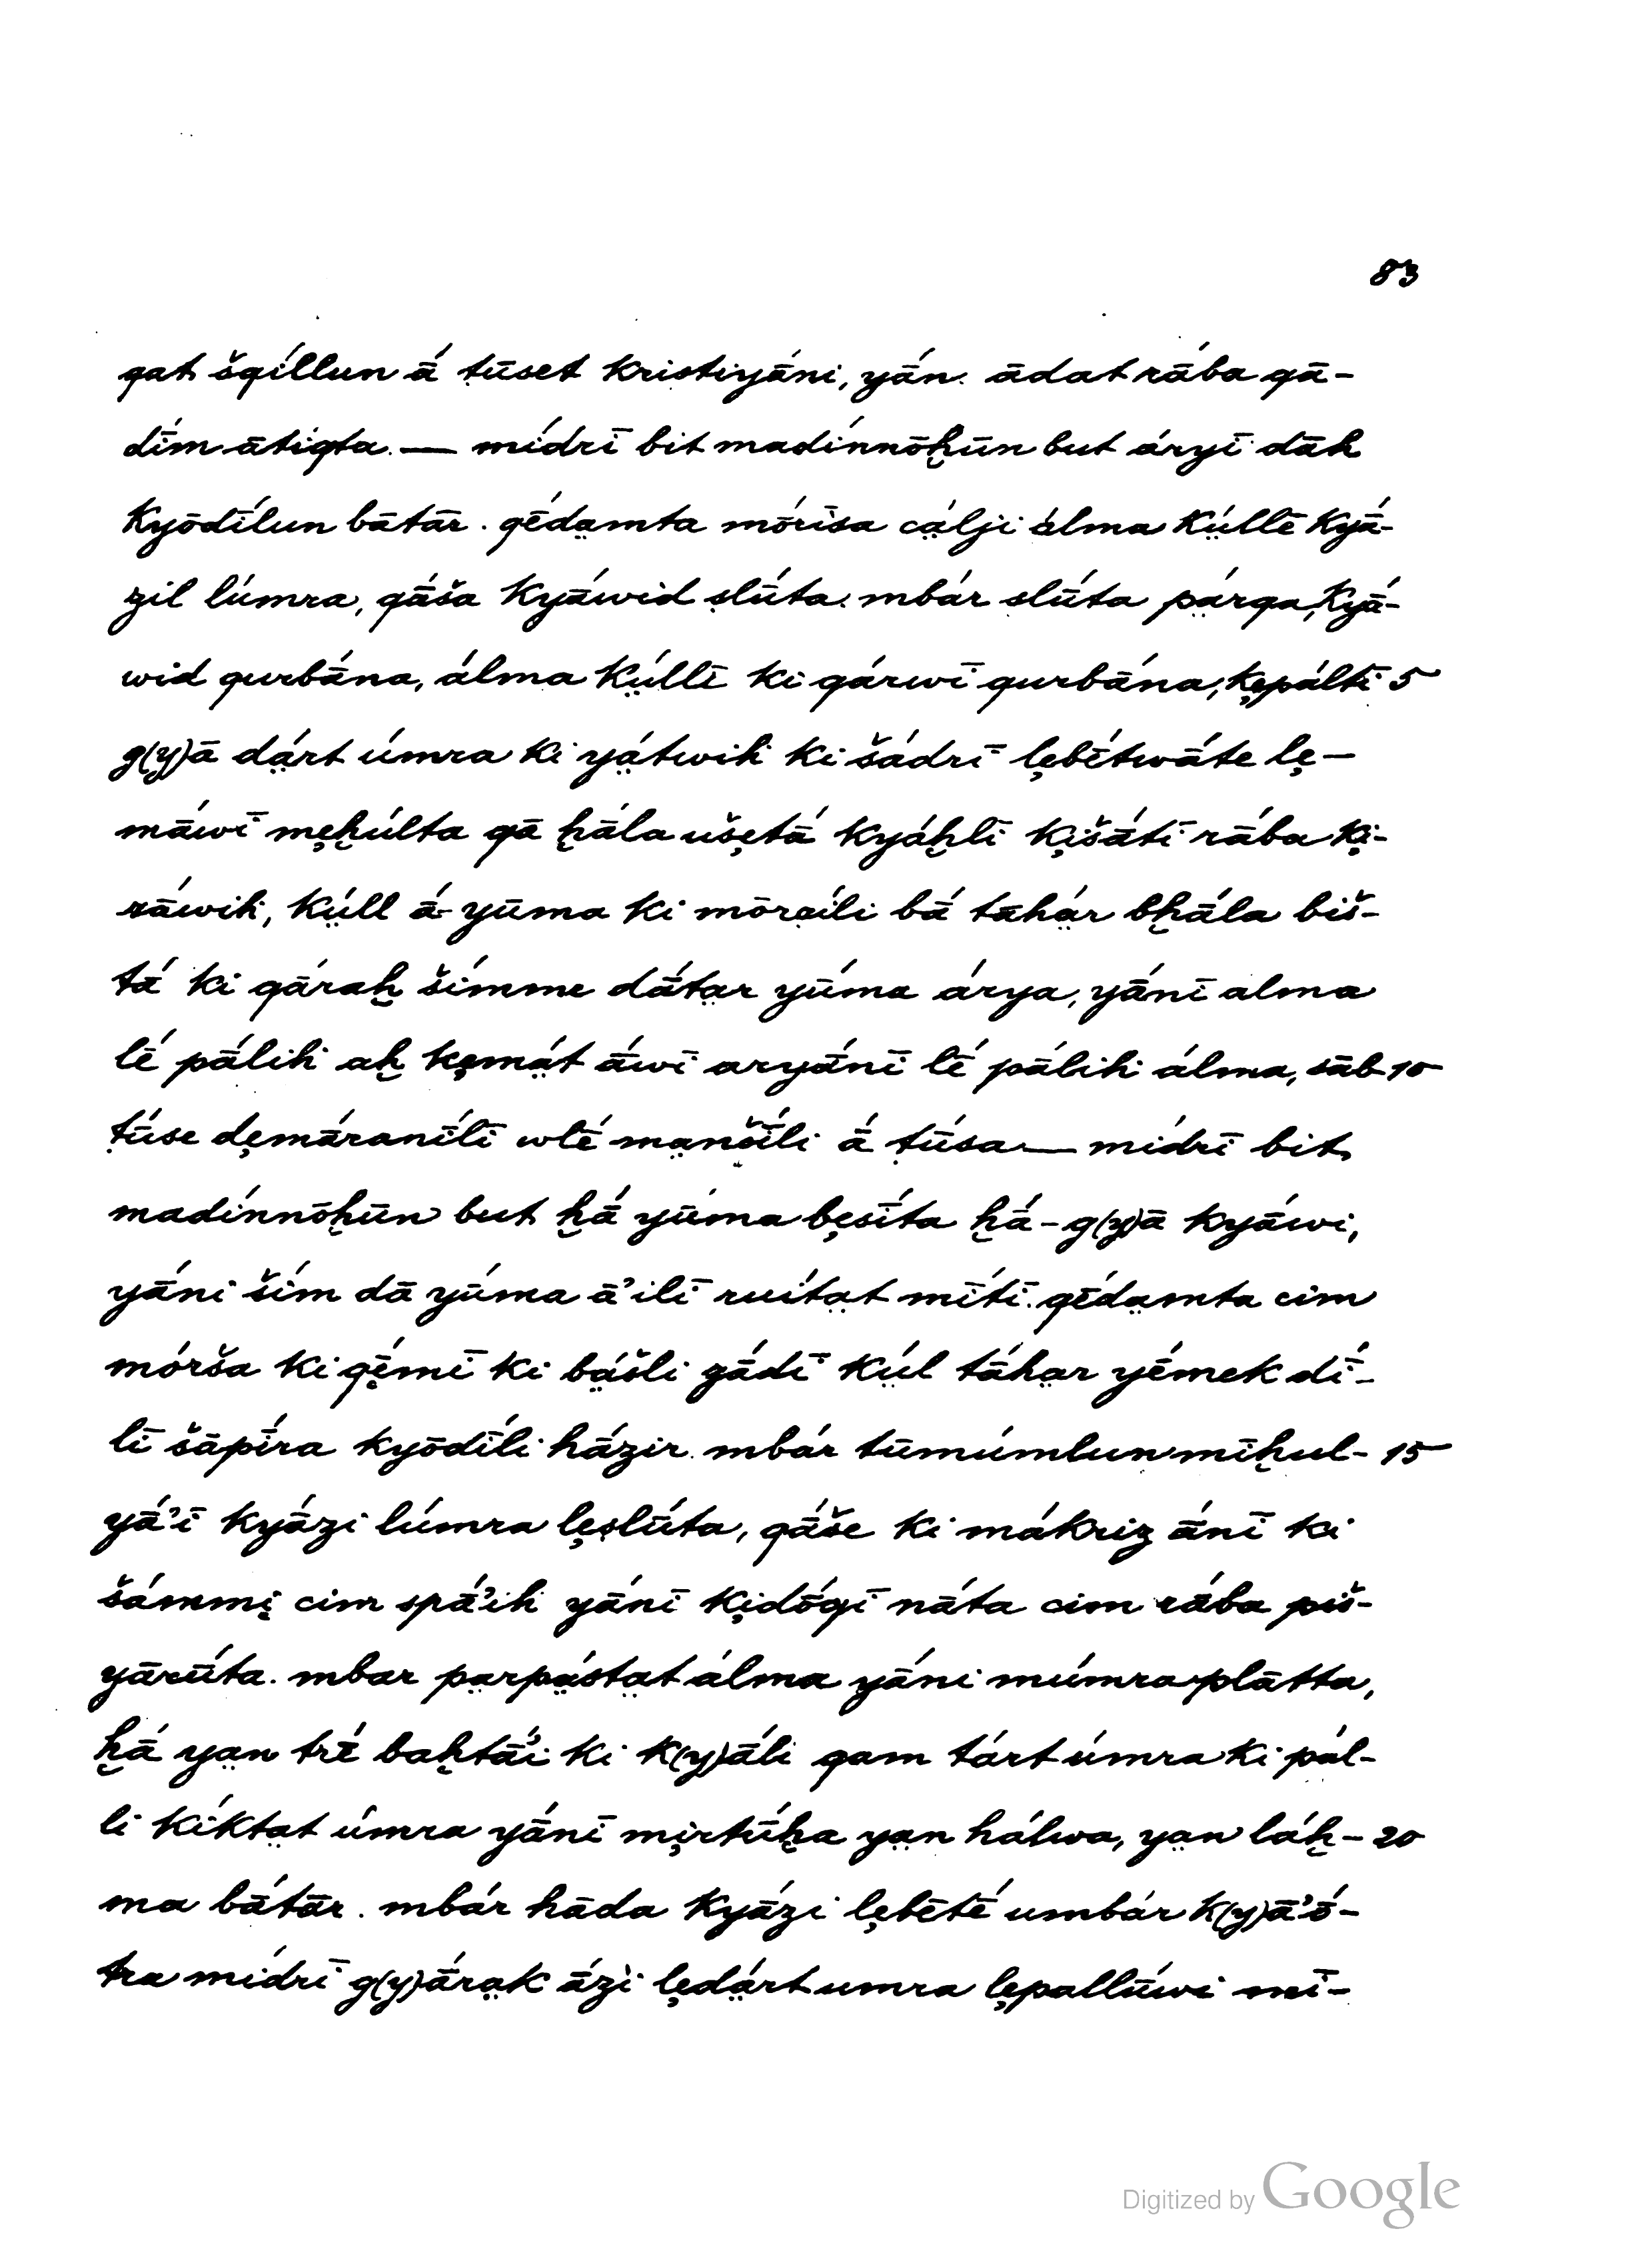 83
qat šqíllun ā́ tūset kristiyā́ni, yā́n ādat rā́ba qā-
dī́m ātiqta. — mídrī bit madínnōḫūn but áryī dāh
kyōdī́lun bātār. qēdạ̈mta mōrīsa cạ̈́lji álma kụ̈llē kyā́-
zil lúmra, qā́ša kyā́wid ṣlū́ta. mbár ṣlūta pạ̈rqa, kyā́-
wid qurbā́na, álma kụ̈́llē ki qárwī qurbā́na, kẹpáltī 5
g(y)ā dạ̈́rt úmra ki yạ̈́twih ki šádrī lẹbētwā́te lẹ-
mā́wī mẹḫúlta qā ḫāla ušẹtā́ kyáḫlī kịšā́tī rāba kị-
rā́wih, kụ̈́ll ā́-yūma ki mōrạ̈íli bā́ tāhạ̈́r bḫā́la biš-
tā́ ki qā́raḫ šímme dā́tạ̈r yū́ma árya, yā́nī alma
lē pā́lih aḫ kẹmạ̈́t ā́wī aryā́nī lē pā́lih álma, sāb 10
ṭūse dẹmā́ranī́lī wlē mạ̈nšī́li ā́ ṭū́sa — mídrī bit
madínnōḫūn but ḫā́ yū́ma bẹsī́ta ḫā́-g(y)ā kyā́wi,
yā́ni ším dā yū́ma ā’ilī ruítạ̈t mī́tī. qēdạ̈mta cim
mórša ki qẹ́mī ki bạ̈́šli zā́dī kụ̈́l tā́hạ̈r yḗmek dī́-
lī šāpī́ra kyōdī́li házir. mbár tūmúmlun mīḫul- 15
yā́’ī kyā́zi lúmra lẹṣlū́ta, qā́še ki mákriz ā́nī ki
šámmị cim spā́’ih yā́nī kịdṓqī nāta cim rā́ba piš-
yārū́ta. mbar pạ̈rpạ̈́stạ̈t álma yā́ni múmra plātta,
ḫā́ yạ̈n trḗ baḫtā́’i ki k(y)āli qam tárt úmra ki pál-
li kíktạ̈t úmra yā́nī mịrtū́ḫa yạ̈n hálwa, yạ̈n láḫ- 20
ma bā́tār. mbár hāda kyā́zi lẹbētḗ umbár k(y)ā’ṓ-
tra mídrī g(y)ā́rạ̈k ā́zi lẹdạ̈́rt umra lẹpallū́wi mī-
Digitized by Google